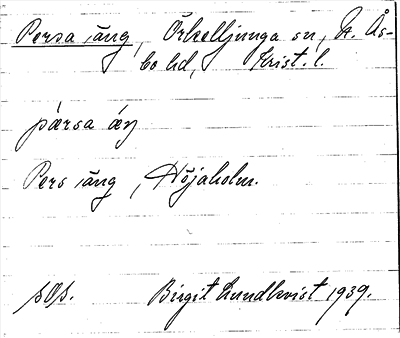 Persa äng, Örkelljunga sn, N. Ås-
bo hd, Krist. l.
pærsa æŋ
Pers äng, Höjaholm.
sOs. Birgit Lundkvist 1939.